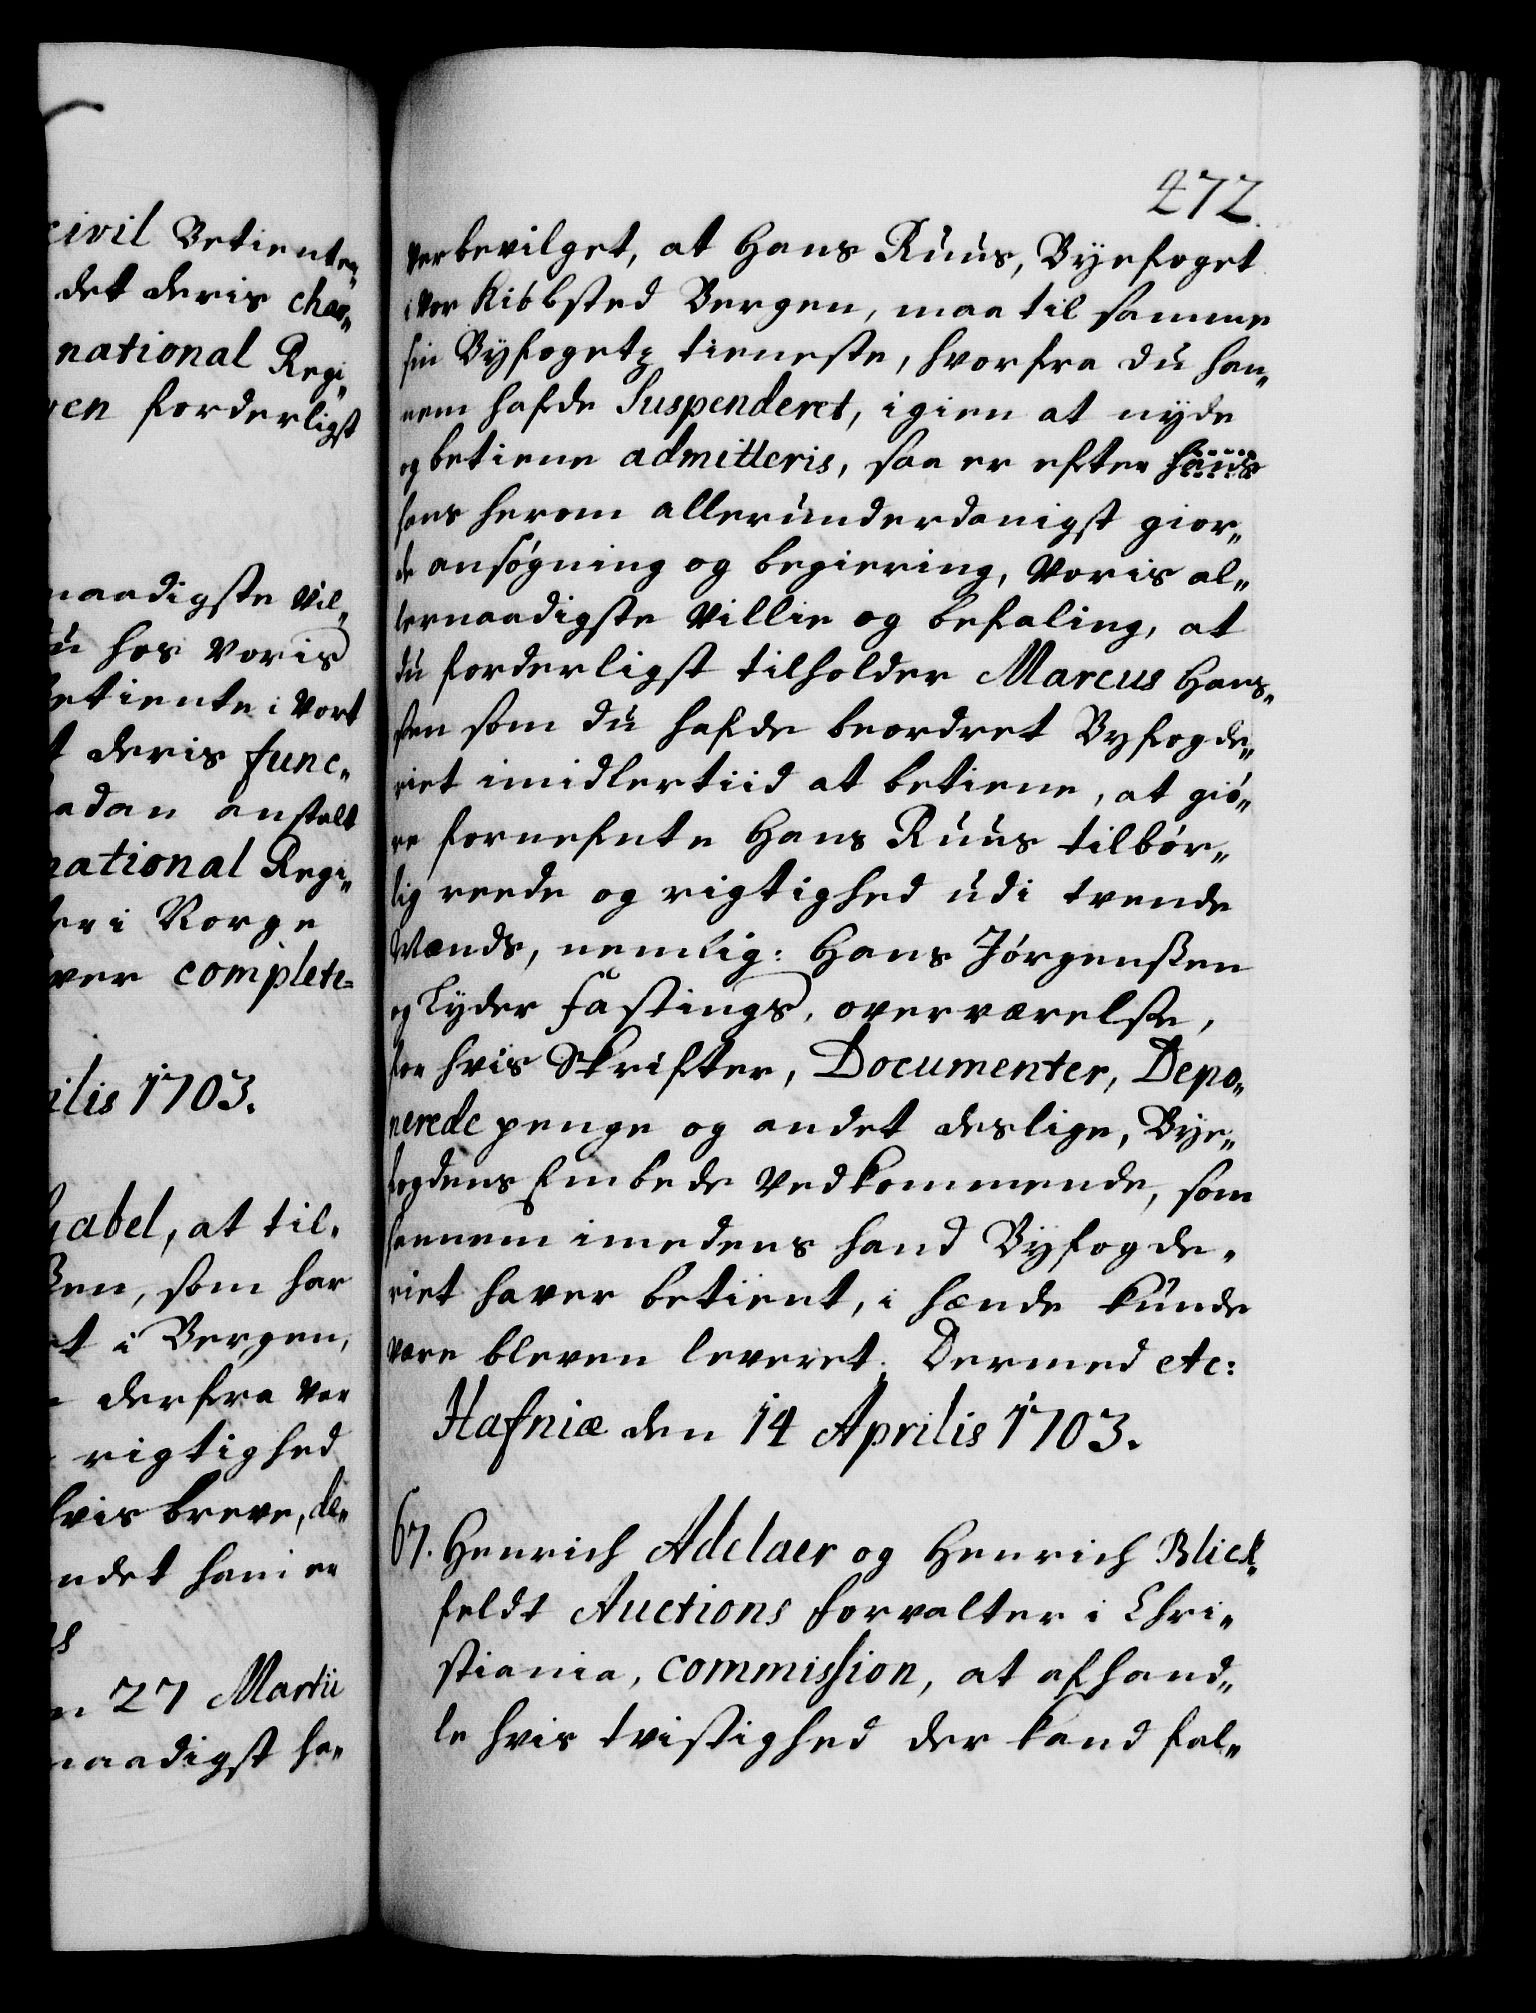 civil Betiente„
det deris char„
national Regi„
ven forderligst
naadigste Vil„
du hos Voris
betiente i Vort
t deris func„
adan anstalt
national Regi„
der i Norge
ver complete=
ilis 1703.
Gabel, at til„
ßen, som har
et i Bergen,
derfra var
rigtighed
hvis breve, de„
ndet han er
27 Martii
naadigst ha„
472.
ver bevilget, at Hans Ruus, Byefoget
i Vor Kiöbsted Bergen, maa til samme
sin Byfogetz tieneste, hvorfra du han„
nem hafde Suspenderet, igien at nyde
og betiene admitteris, saa er efter hans
hans herom allerunderdanigst gior„
de ansögning og begiering, Voris al„
lernaadigste Villie og befaling, at
du forderligst tilholder Marcus Hans„
sen som du hafde beordret Byfogde„
riet imidlertiid at betiene, at giö„
re fornefnte Hans Ruus tilbör„
lig reede og rigtighed udi tvende
Mænds, nemlig: Hans Jörgenßen
og Lyder Fastings, overværelse,
for hvis Skrifter, Documenter, Depo„
nerede penge og andet deslige, Bye„
fogdens Embede Vedkommende, som
hannem imedens hand Byfogde„
riet haver betient, i hænde kunde
være bleven leveret. Dermed etc:
Hafniæ den 14 Aprilis 1703.
67. Henrich Adelaer og Henrich Blick„
feldt Auctions Forvalter i Chri„
stiania, commission, at afhand„
le hvis tvistighed der kand fal„